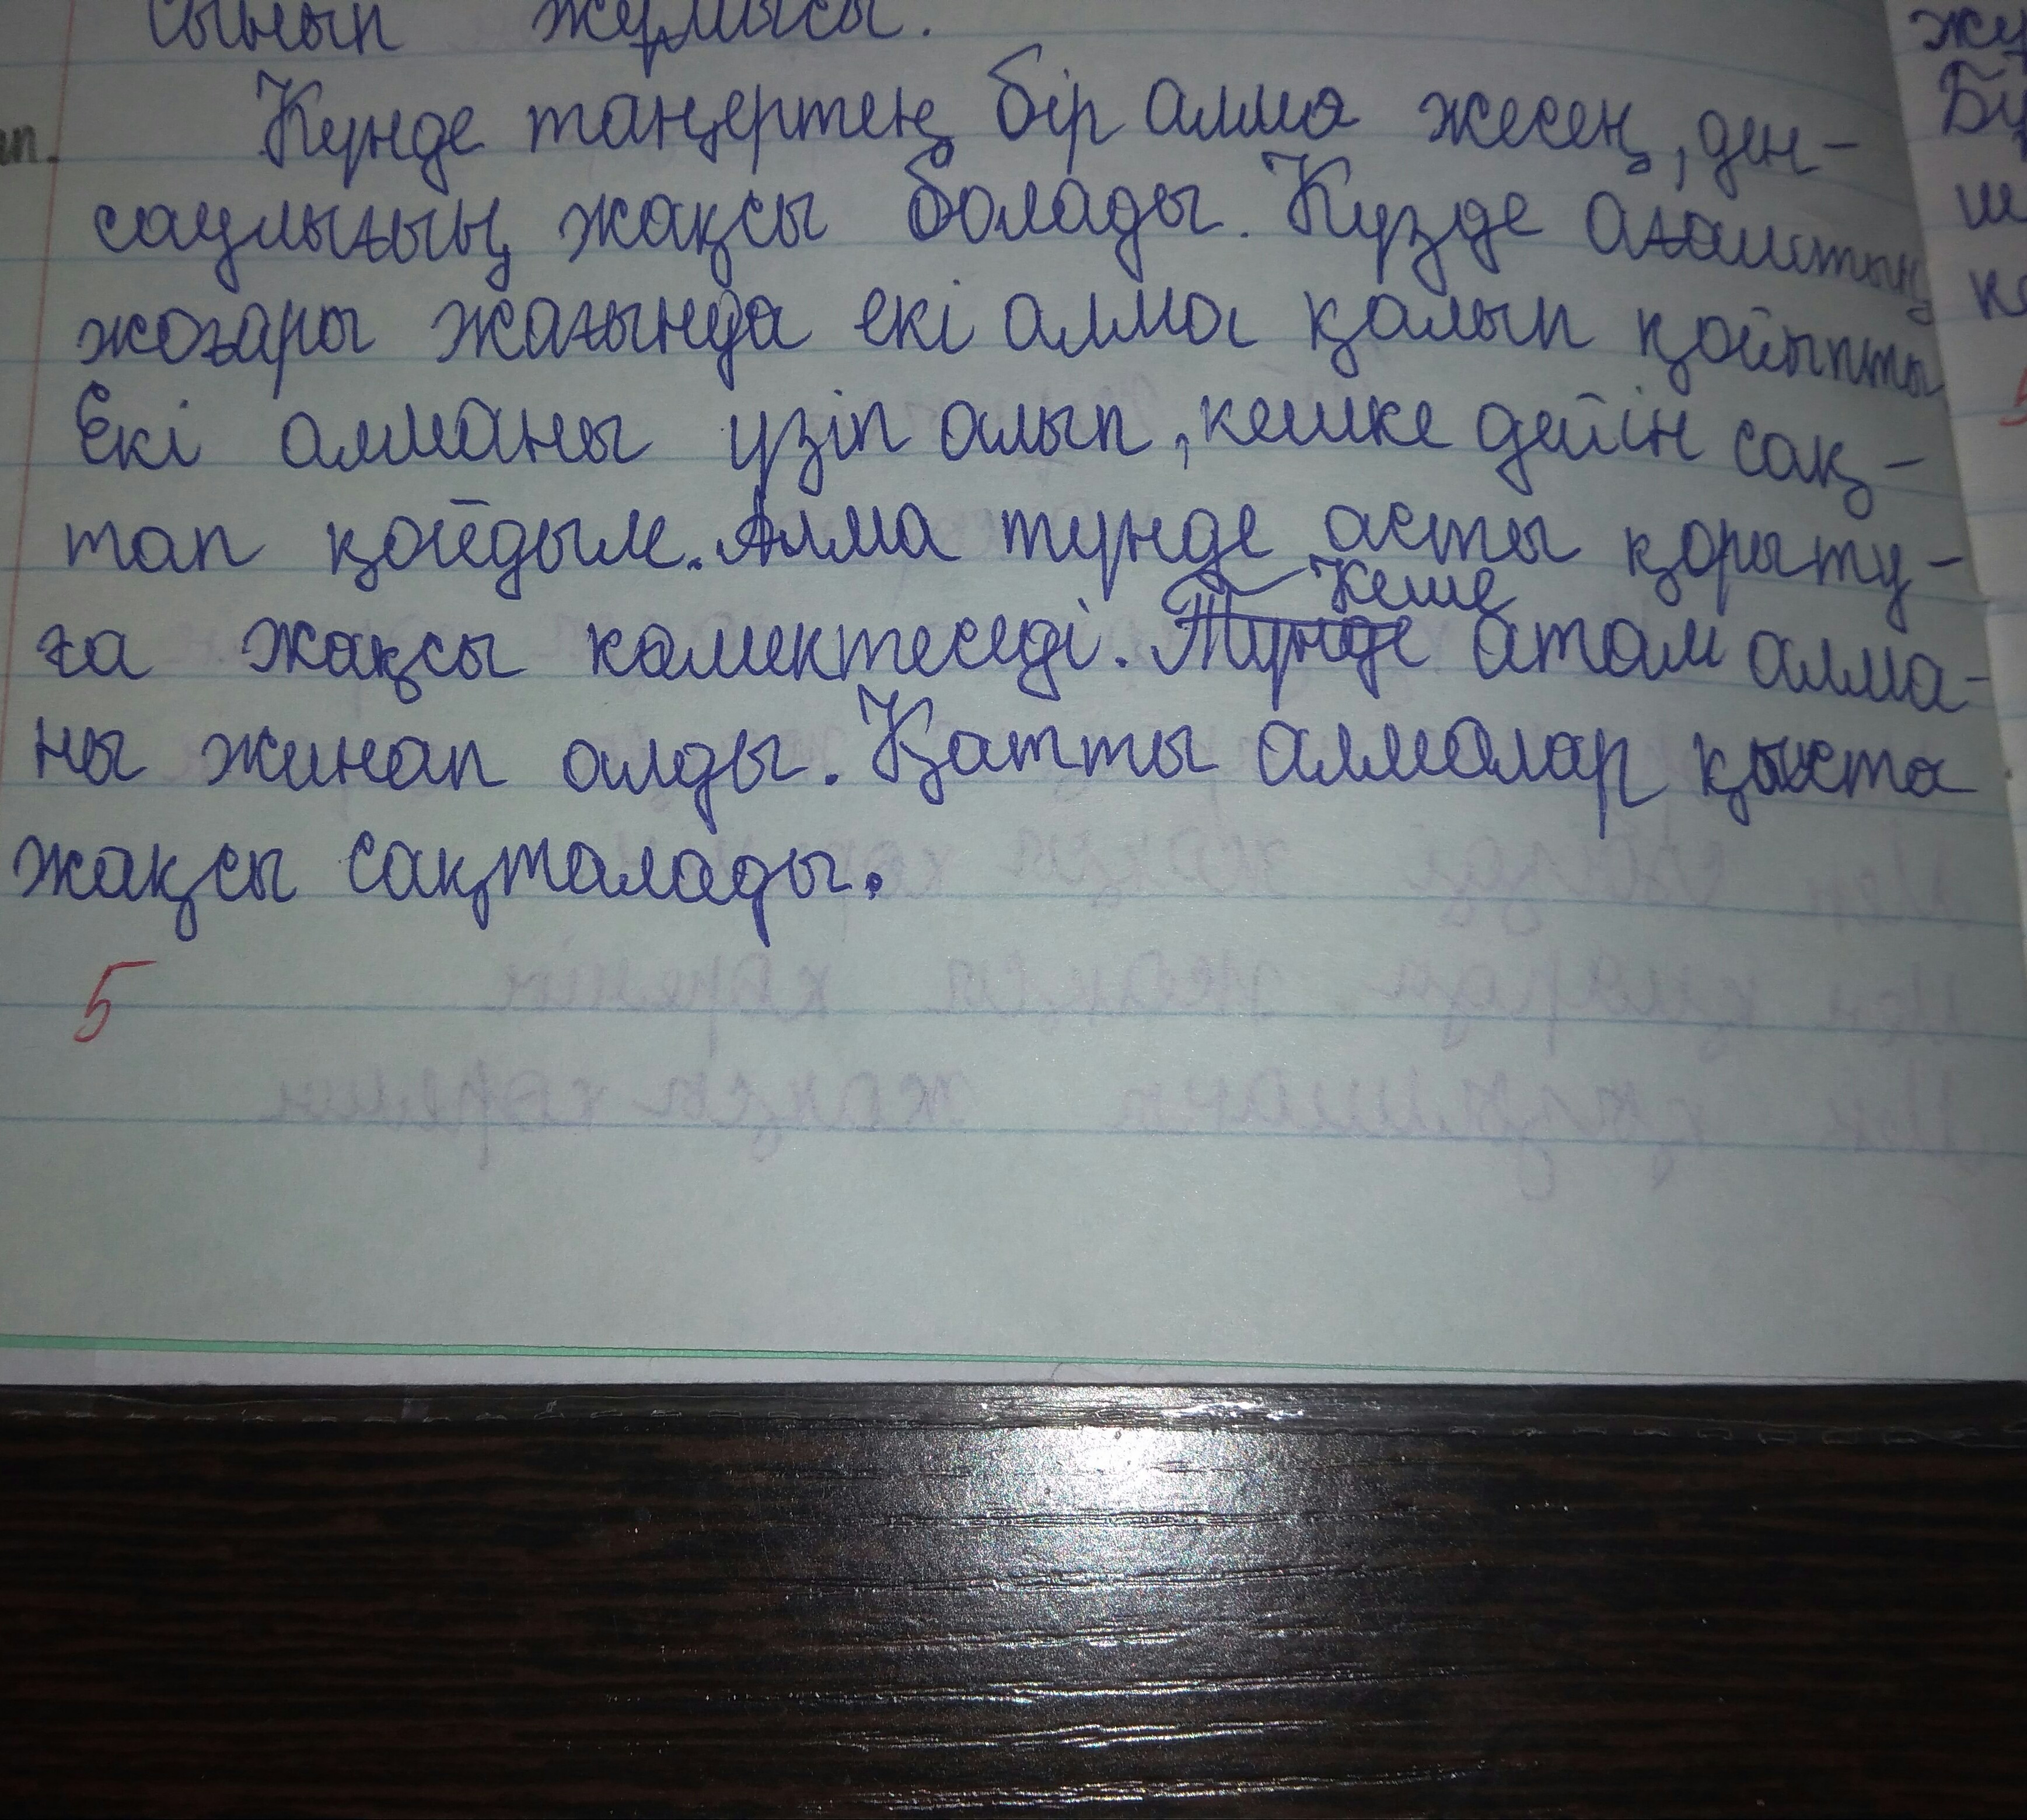 сынып жұмысы.
Күнде таңертең бір алма жесең, ден-
саулығың жақсы болады. Күзде ағаштың
жоғары жағында екі алма қалып қойыпты
Екі алманы үзіп алып, кешке дейін сақ-
тап қойдым. Алма түнде асты қорыту-
ға жақсы көмектеседі. Түнде Кеше атам алма-
ны жинап алды. Қатты алмалар қыста
жақсы сақталады.
5